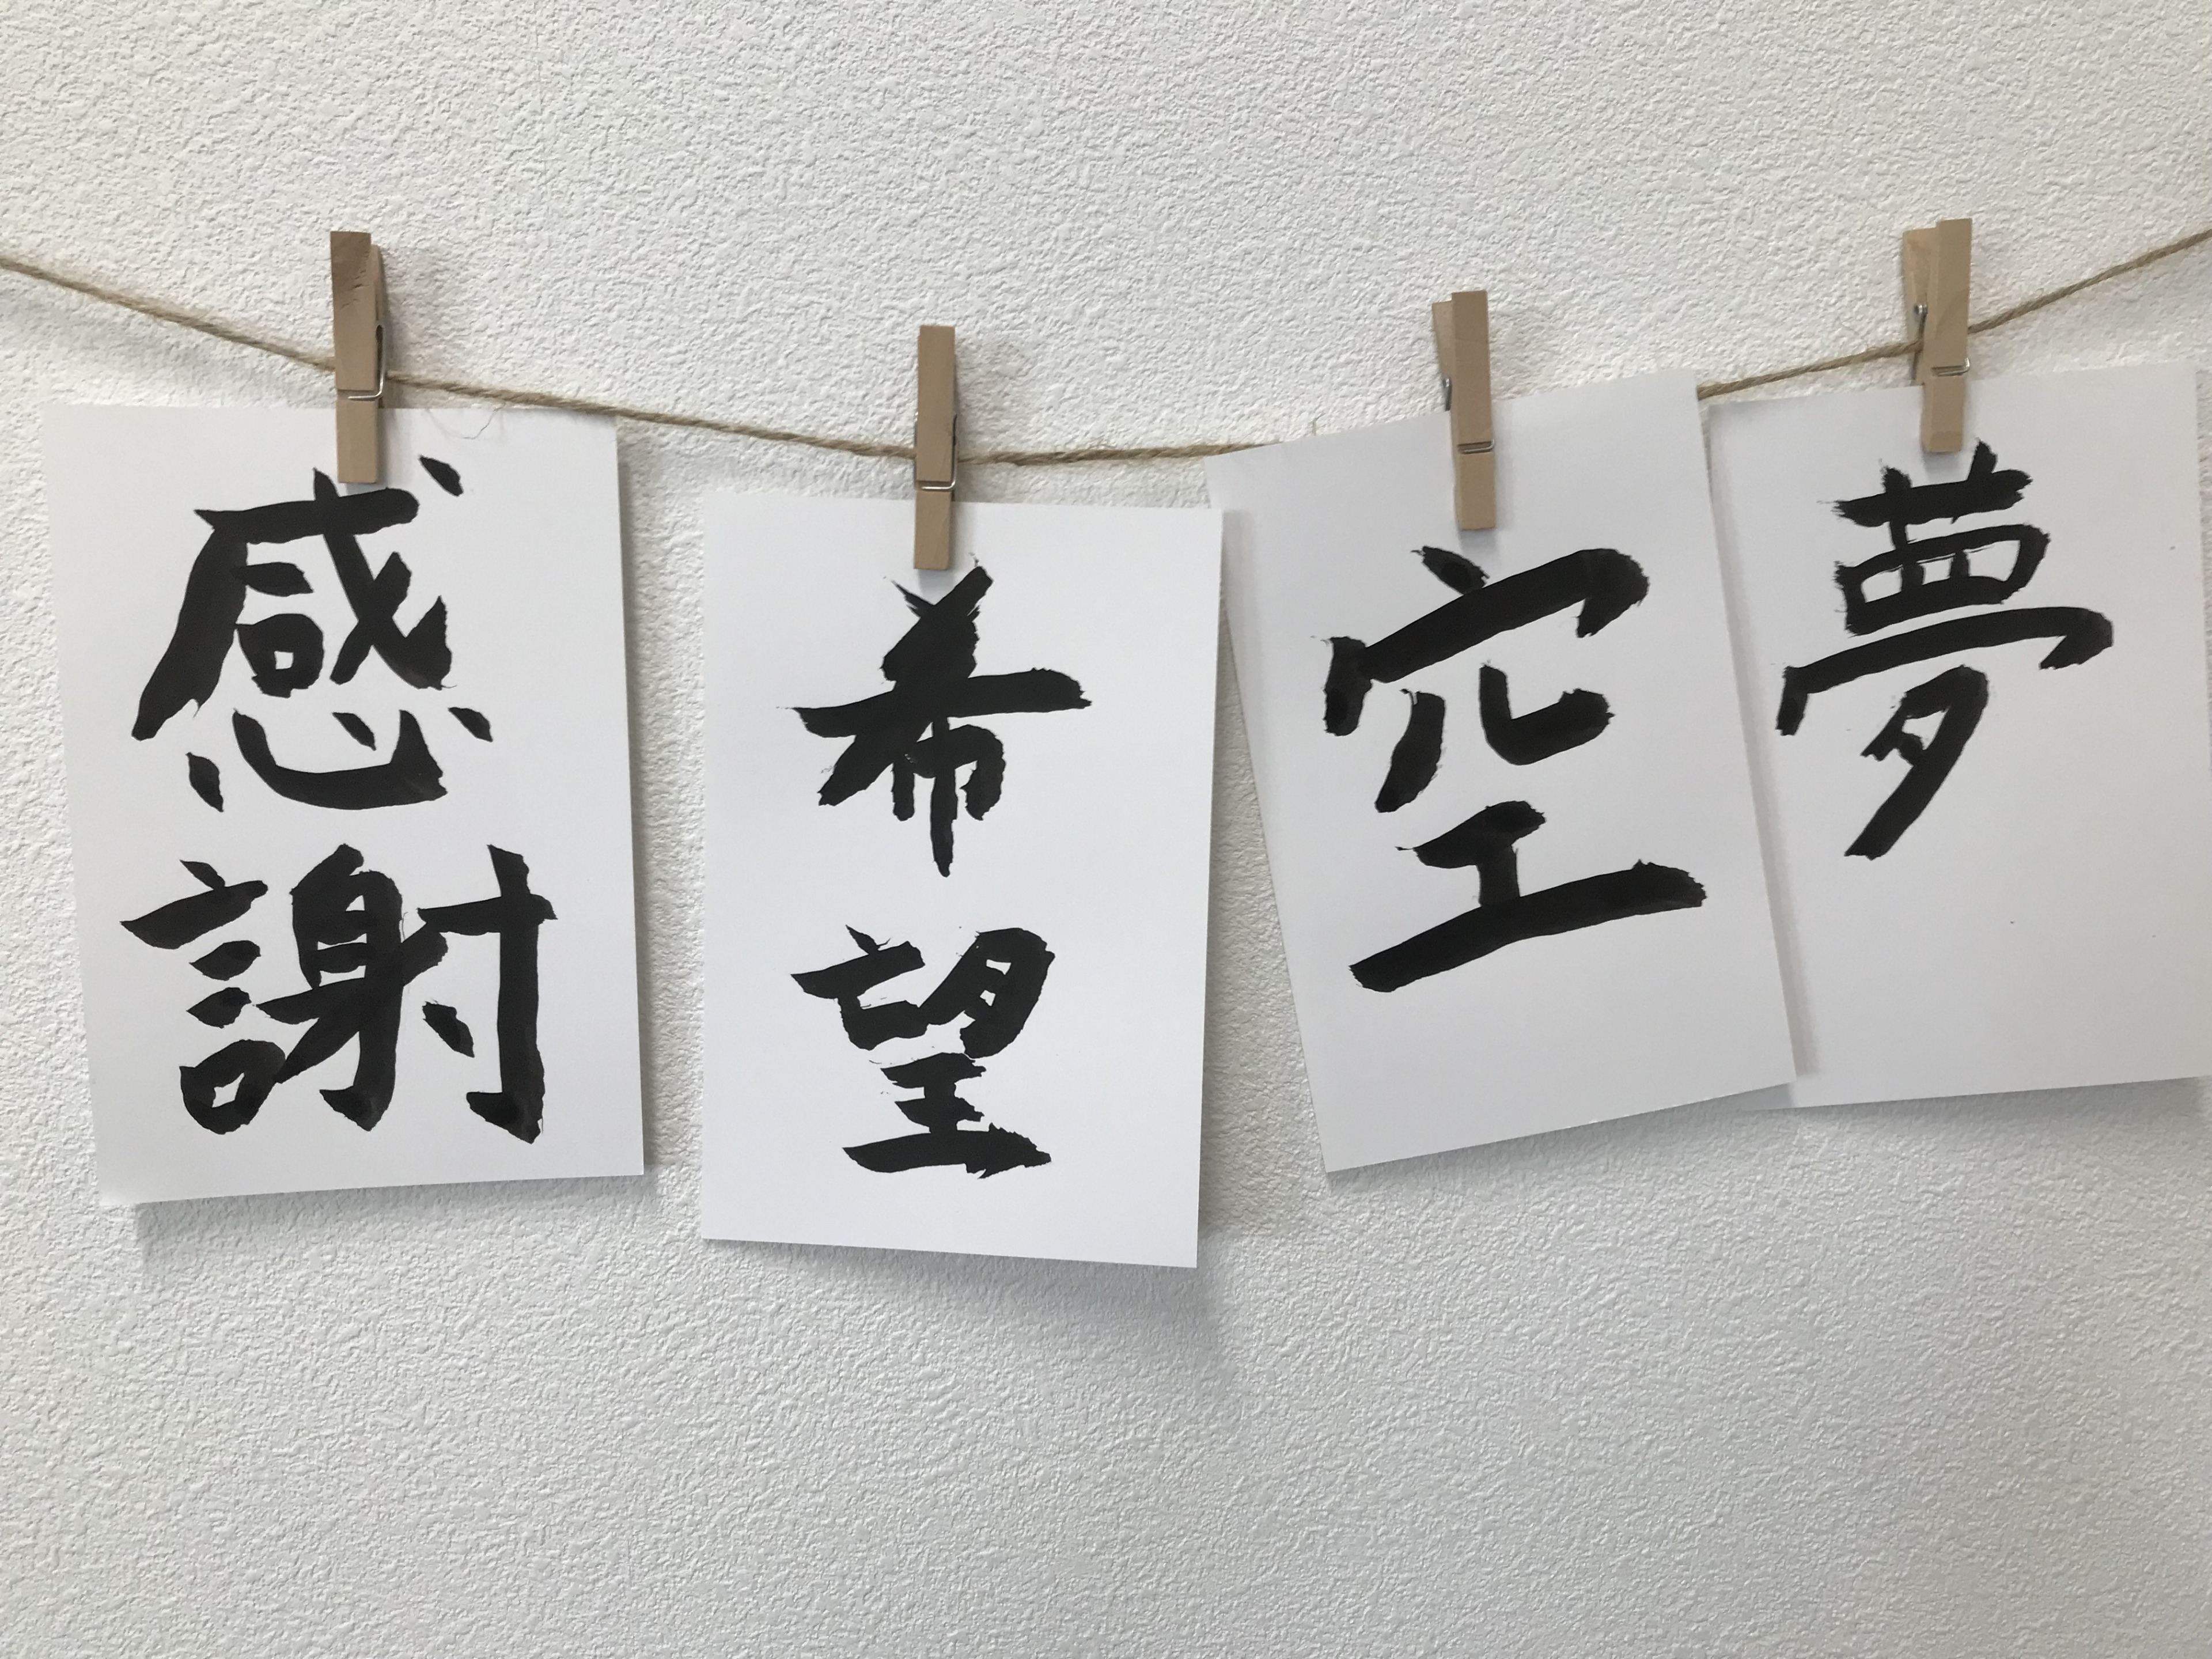 感謝
希望
空
夢